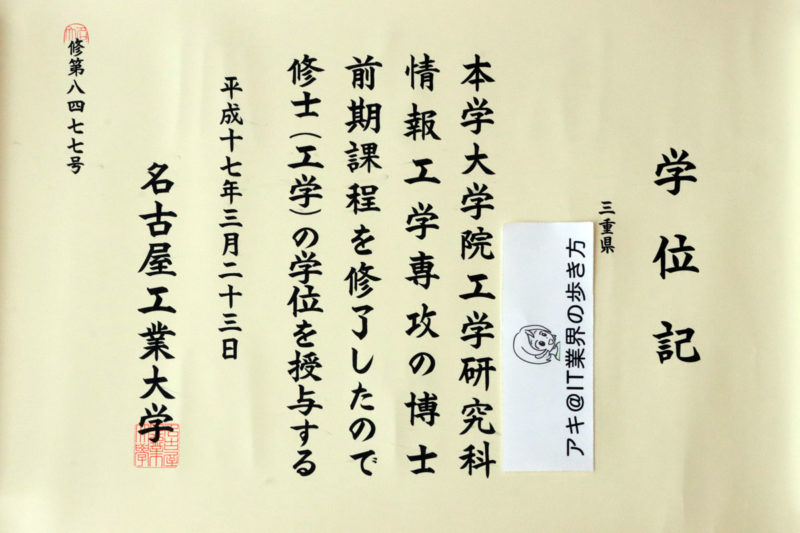 学位記
三重県
アキ@IT業界の歩き方
本学大学院工学研究科
情報工学専攻の博士
前期課程を修了したので
修士(工学)の学位を授与する
平成十七年三月二十三日
名古屋工業大学
修第八四七七号